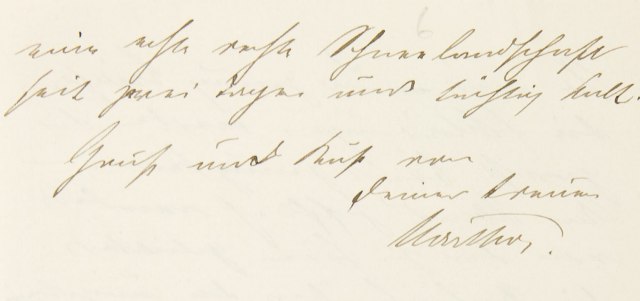 eine echte rechte Schneelandschaft
seit zwei Tagen und tüchtig kalt.
Gruß und Kuß von
Deiner treuen
Martha.